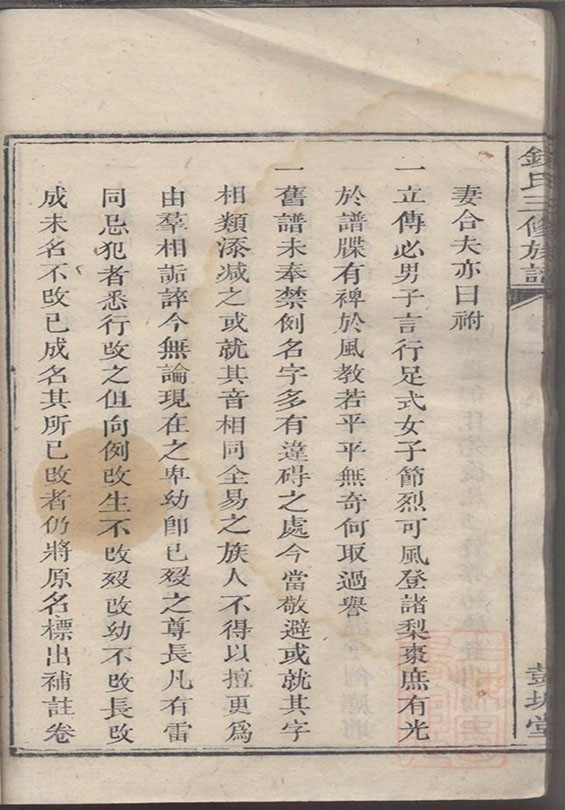 錢氏三修族譜
彭城堂
妻合夫亦曰祔
一立傳必男子言行足式女子節烈可風登諸梨棗庶有光
於譜牒有裨於風教若平平無奇何取過譽
一舊譜未奉禁例名字多有違碍之處今當敬避或就其字
相類添减之或就其音相同全易之族人不得以擅更爲
由羣相詬誶今無論現在之卑幼卽已歿之尊長凡有雷
同忌犯者悉行改之但向例改生不改歿改幼不改長改
成未名不改已成名其所已改者仍將原名標出補註卷